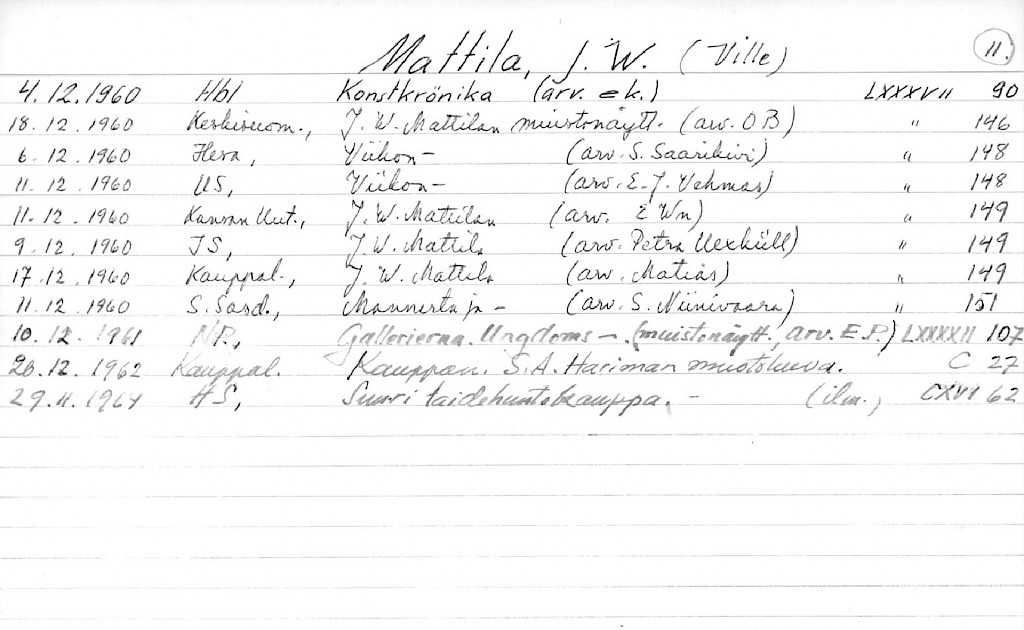 Mattila, J. W. (Ville) 11.
4.12.1960 Hbl Konstkrönika (arv. e k.) LXXXVII 90
18.12.1960 Keskisuom., J. W. Mattilan muistonäytt. (arv. O B) " 146
6.12.1960 Viikon- (arv. S. Saarikivi) " 148
11.12.1960 US, Viikon- (arv. E. J. Vehmas) " 148
11.12.1960 Kansan Uut., J. W. Mattilan (arv. E Wn) " 149
9.12.1960 J. W. Mattila (arv. Petra Uexküll) " 149
17.12.1960 Kauppal., J. W. Mattila (arv. Matias) " 149
11.12.1960 S. Sosd., (arv. S. Niinivaara) " 151
10.12.1961 NP, Gallerierna. Ungdoms- (muistonäytt., arv. E.P.) LXXXXII 107
20.12.1962 Kauppal. Kauppan. S. A. Hariman muotokuva. C 27
29.11.1964 HS, Suuri taidehuutokauppa. - (ilm., CXVI 62